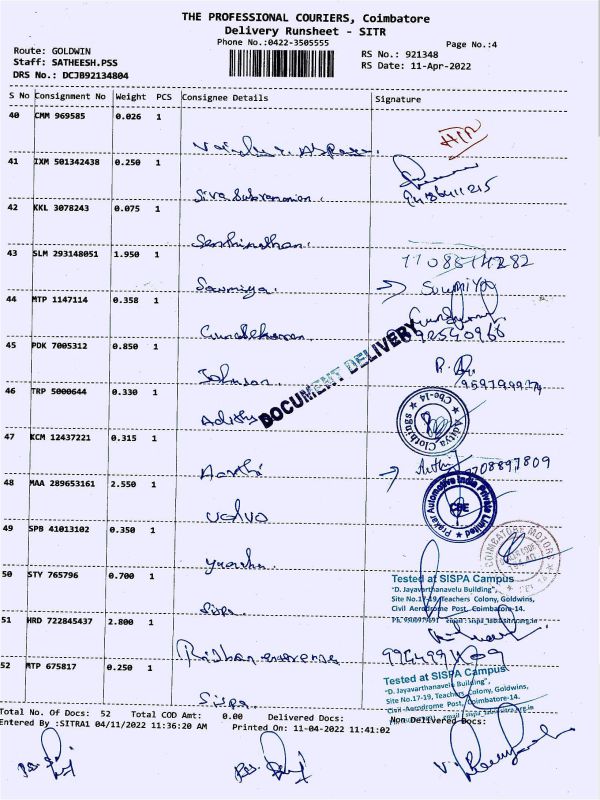 THE PROFESSIONAL COURIERS, Coimbatore
Delivery Runsheet - SITR
Phone No.:0422-3505555
Page No.:4
Route: GOLDWIN
Staff: SATHEESH.PSS
DRS No.: DCJB92134804
RS No.: 921348
RS Date: 11-Apr-2022
S No Consignment No Weight PCS Consignee Details Signature
40 CMM 969585 0.026 1
41 IXM 501342438 0.250 1
Siva Subramanian.
9486411215
42 KKL 3078243 0.075 1
Senthinathan.
43 SLM 293148051 1.950 1
Sowmiya.
Sowmiya
44 MTP 1147114 0.358 1
Gunasekaran
45 PDK 7005312 0.850 1
Johnson
DOCUMENT DELIVERY
46 TRP 5000644 0.330 1
Aditya
Aditya Clothings
Cbe-14
47 KCM 12437221 0.315 1
Aarthi
48 MAA 289653161 2.550 1
Volvo
Prakar Automotive India Private Limited
CBE
49 SPB 41013102 0.350 1
COIMBATORE MOTORS
50 STY 765796 0.700 1
Sispa
Tested at SISPA Campus
"D. Jayavarthanavelu Building",
Site No.17-19, Teachers Colony, Goldwins,
Civil Aerodrome Post, Coimbatore-14.
51 HRD 722845437 2.800 1
52 MTP 675817 0.250 1
Sispa
Tested at SISPA Campus
"D. Jayavarthanavelu Building",
Site No.17-19, Teachers Colony, Goldwins,
Civil Aerodrome Post, Coimbatore-14.
Total No. Of Docs: 52 Total COD Amt: 0.00 Delivered Docs: Non Delivered Docs:
Entered By :SITRA1 04/11/2022 11:36:20 AM Printed On: 11-04-2022 11:41:02